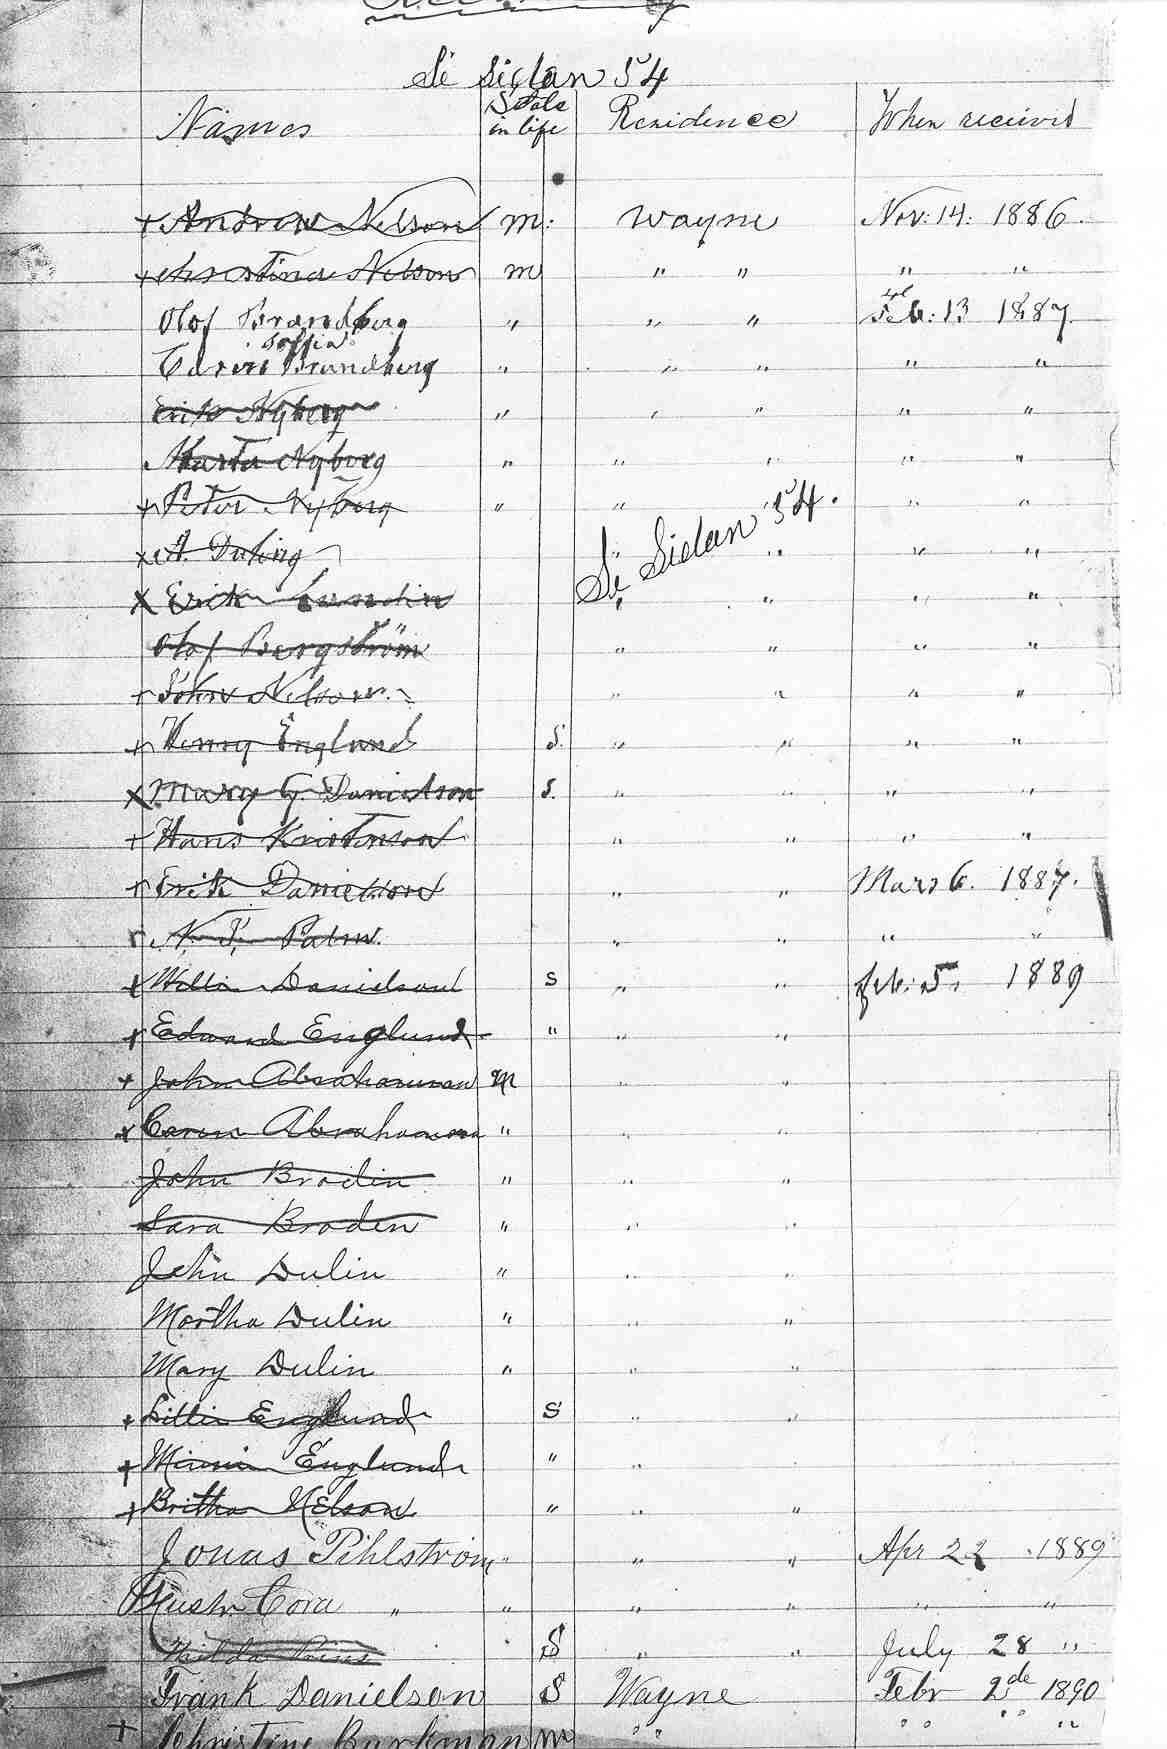 Se Sidan 54
Names State in life Residence When received
+ Andrew Nelson m: Wayne Nov: 14: 1886.
+ Christina Nelson m " " " "
Olof Brandberg " " " Feb: 13 1887.
Soffia
Caren Brandberg " " " " "
Erik Nyberg " " " " "
Marta Nyberg " " " " "
+ Peter Nyberg " " " " "
Se Sidan 54.
x A. Daling " " " "
x Erik Lundin " " " "
Olof Bergström " " " "
+ John Nilson " " " "
+ Henry Englund S. " " " "
x Mary G. Danielson S. " " " "
+ Hans Kristenson " " " "
+ Erik Danielson " " Mars 6. 1887.
+ Palm. " " " "
+ Danielson S " " Feb. 5. 1889
+ Edward Englund " " "
+ John Abrahamson m " "
+ Caren Abrahamson " " "
John Brodin " " "
Sara Broden " " "
John Dulin " " "
Martha Dulin " " "
Mary Dulin " " "
+ Lillie Englund S " "
+ Minnie Englund " "
+ Britha Nelson " " "
Jonas Pihlström " " " Apr 22 1889
Cora " " " " " "
Hilda S " " July 28 "
Frank Danielson S Wayne Febr 2de 1890
+ Christine Barkman m " " " " "